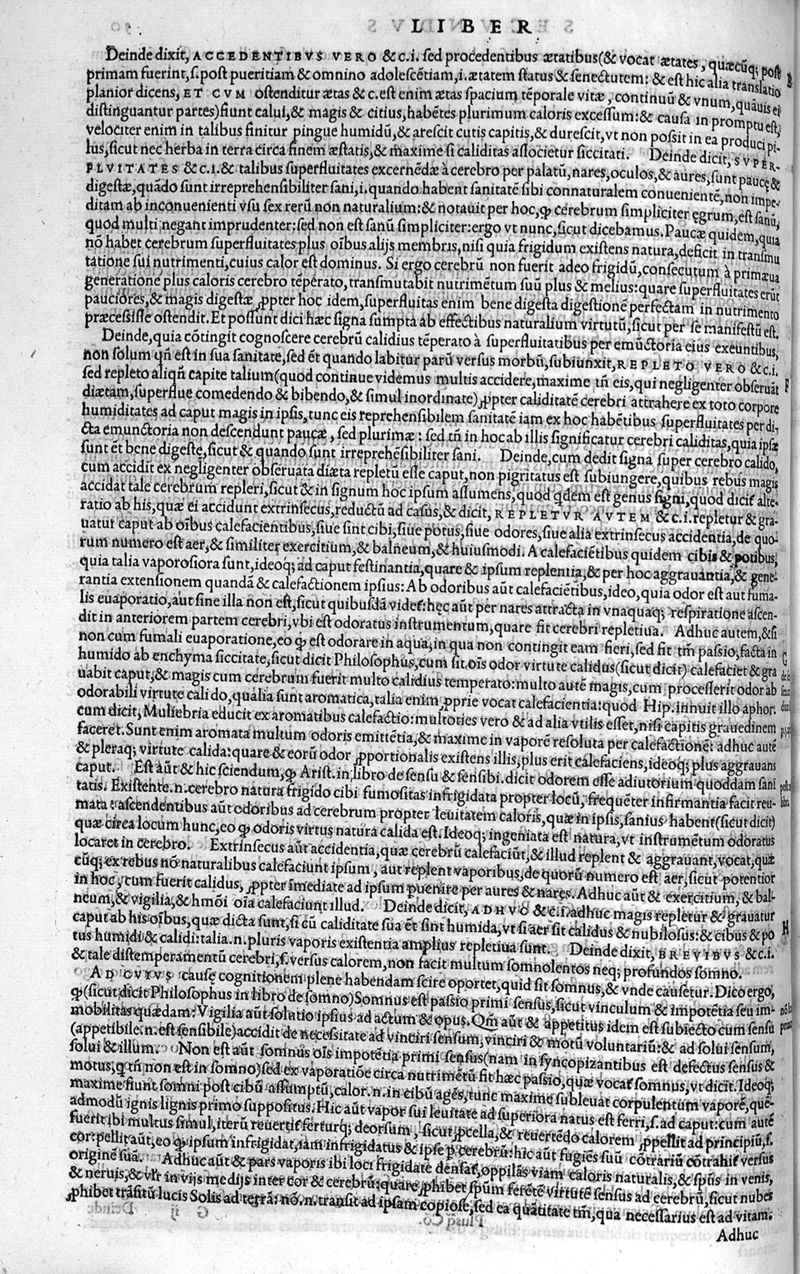 LIBER
Deinde dixit, ACCEDENTIBVS VERO & c.i. sed procedentibus ætatibus (& vocat ætates, quæcūq; post
primam fuerint, s. post pueritiam & omnino adolescētiam, i. ætatem status & senectutem: & est hic alia translatio
planior dicens, ET CVM ostenditur ætas & c. est enim ætas spacium tēporale vitæ, continuū & vnum, quāuis ei
distinguantur partes) fiunt calui, & magis & citius, habētes plurimum caloris excessum: & causa in promptu est,
velociter enim in talibus finitur pingue humidū, & arescit cutis capitis, & durescit, vt non possit in ea produci pi-
lus, sicut nec herba in terra circa finem æstatis, & maxime si caliditas associetur siccitati. Deinde dicit, SVPER-
FLVITATES & c.i. & talibus superfluitates excernēdæ à cerebro per palatū, nares, oculos, & aures, sunt paucę &
digestæ, quādo sunt irreprehensibiliter sani, i. quando habent sanitatē sibi connaturalem conuenientē, non impe-
ditam ab inconuenienti vsu sex rerū non naturalium: & notauit per hoc, ꝙ cerebrum simpliciter ęgrum, est sanū,
quod multi negant imprudenter: sed non est sanū simpliciter: ergo vt nunc, sicut dicebamus. Paucæ quidem, quia
nō habet cerebrum superfluitates plus oībus alijs membris, nisi quia frigidum existens natura, deficit in transmu
tatione sui nutrimenti, cuius calor est dominus. Si ergo cerebrū non fuerit adeo frigidū, consecutum à primæua
generatione plus caloris cerebro tēperato, transmutabit nutrimētum suū plus & melius: quare superfluitates erūt
pauciores, & magis digestæ, ꝓpter hoc idem, superfluitas enim bene digesta digestionē perfectam in nutrimento
præcessisse ostendit. Et possunt dici hæc signa sumpta ab effectibus naturalium virtutū, sicut per se manifestū est.
Deinde, quia cōtingit cognoscere cerebrū calidius tēperato à superfluitatibus per emūctoria eius exeuntibus,
non solum qn̄ est in sua sanitate, sed et quando labitur parū versus morbū, subiunxit, REPLETO VERO & c.i.
sed repleto aliqn̄ capite talium (quod continue videmus multis accidere, maxime tn̄ eis, qui negligenter obseruāt
diætam, superflue comedendo & bibendo, & simul inordinate), ꝓpter caliditatē cerebri attrahere ex toto corpore
humiditates ad caput magis in ipsis, tunc eis reprehensibilem sanitatē iam ex hoc habētibus superfluitates per di-
cta emunctoria non descendunt paucæ, sed plurimæ: sed tn̄ in hoc ab illis significatur cerebri caliditas, quia ipsæ
sunt et bene digestę, sicut & quando sunt irreprehēsibiliter sani. Deinde, cum dedit signa super cerebro calido,
cum accidit ex negligenter obseruata diæta repletū esse caput, non pigritatus est subiungere, quibus rebus magis
accidat tale cerebrum repleri, sicut & in signum hoc ipsum assumens, quod qdem est genus signi, quod dicit alte-
ratio ab his, quæ ei accidunt extrinsecus, reductū ad casus, & dicit, REPLETVR AVTEM & c.i. repletur & gra-
uatur caput ab oībus calefacientibus, siue sint cibi, siue potus, siue odores, siue alia extrinsecus accidentia, de quo-
rum numero est aer, & similiter exercitium, & balneum, & huiusmodi. A calefaciētibus quidem cibis & potibus,
quia talia vaporosiora sunt, ideoq; ad caput festinantia, quare & ipsum replentia, & per hoc aggrauantia, & gene-
rantia extensionem quandā & calefactionem ipsius: Ab odoribus aūt calefacientibus, ideo, quia odor est aut fuma-
lis euaporatio, aut sine illa non est, sicut quibusdā videt: hęc aūt per nares attracta in vnaquaq; respiratione ascen-
dit in anteriorem partem cerebri, vbi est odoratus instrumentum, quare fit cerebri repletiua. Adhuc autem, & si
non cum fumali euaporatione, eo ꝙ est odorare in aqua, in qua non contingit eam fieri, sed fit tn̄ passio, facta in
humido ab enchyma siccitate, sicut dicit Philosophus, cum sit oīs odor virtute calidus (sicut dicit) calefaciet & gra
uabit caput, & magis cum cerebrum fuerit multo calidius temperato: multo autē magis, cum processerit odor ab
odorabili virtute calido, qualia sunt aromatica, talia enim ꝓprie vocat calefacientia: quod Hip. innuit illo aphor.
cum dicit, Muliebria educit ex aromatibus calefactio: multoties vero & ad alia vtilis esset, nisi capitis grauedinem
faceret. Sunt enim aromata multum odoris emittētia, & maxime in vaporē resoluta per calefactionē: adhuc autē
& pleraq; virtute calida: quare & eorū odor ꝓportionalis existens illis, plus erit calefaciens, ideoq; plus aggrauans
caput. Est aūt & hic sciendum, ꝙ Arist. in libro de sensu & sensibi. dicit odorem esse adiutorium quoddam sani
tatis. Existente .n. cerebro natura frigido cibi fumositas infrigidata propter locū, frequēter infirmantia facit reu-
mata: ascendentibus aūt odoribus ad cerebrum propter leuitatem caloris, quæ in ipsis, sanius habent (sicut dicit)
quæ circa locum hunc, eo ꝙ odoris virtus natura calida est. Ideoq; ingeniata est natura, vt instrumētum odoratus
locaret in cerebro. Extrinsecus aūt accidentia, quæ cerebrū calefaciūt, & illud replent & aggrauant, vocat, quæ
cūq; ex rebus nō naturalibus calefaciunt ipsum, aut replent vaporibus, de quorū numero est aer, sicut potentior
in hoc, cum fuerit calidus, ꝓpter īmediate ad ipsum puenire per aures & nares. Adhuc aūt & exercitium, & bal-
neum, & vigilia, & hmōi oīa calefaciunt illud. Deinde dicit, ADHVC & c.i. adhuc magis repletur & grauatur
caput ab his oībus, quæ dicta sunt, si cū caliditate sua ēt sint humida, vt si aer sit calidus & nubilosus: & cibus & po
tus humidi & calidi: talia .n. pluris vaporis existentia amplius repletiua sunt. Deinde dixit, BREVIBVS & c.i.
& tale distemperamentū cerebri, s. versus calorem, non facit multum somnolentos neq; profundos somno.
AD CVIVS causę cognitionem plene habendam scire oportet, quid sit somnus, & vnde causetur. Dico ergo,
ꝙ (sicut dicit Philosophus in libro de somno) Somnus est passio primi sensus, sicut vinculum & impotētia seu im-
mobilitas quædam: Vigilia aūt solutio ipsius ad actum & opus. Qm̄ aūt & appetitus idem est subiecto cum sensu
(appetibile .n. est sensibile) accidit de necessitate ad vinciri sensum, vinciri & motū voluntariū: & ad solui sensum,
solui & illum. Non est aūt somnus oīs impotētia primi sensus (nam in syncopizantibus est defectus sensus &
motus, ꝙ tn̄ non est in somno) sed ex vaporatiōe circa nutrimētū fit hæc passio, quæ vocat somnus, vt dicit. Ideoq;
maxime fiunt somni post cibū assumptū, calor .n. in cibū agēs, tunc maxime subleuat corpulentum vaporē, que-
admodū ignis lignis primo suppositus. Hic aūt vapor sui leuitate ad superiora natus est ferri, s. ad caput: cum autē
fuerit ibi multus simul, iterū reuertit ferturq; deorsum, sicut ꝓcella, & reuertēdo calorem ꝓpellit ad principiū, s.
cor: pellit aūt, eo ꝙ ipsum infrigidat, iam infrigidatus & ipse ꝑ cerebrū: hic aūt fugiēs suū cōtrariū cōtrahit versus
originē suā. Adhuc aūt & pars vaporis ibi loci frigidate densat, oppilās viam caloris naturalis, & spūs in venis,
& neruis, & vlr in vijs medijs inter cor & cerebrū: quare ꝓhibet spūm ferētē virtutē sensus ad cerebrū, sicut nubes
ꝓhibet trāsitū lucis Solis ad terrā: nō .n. transit ad ipsam copiose, sed ea quātitate tm̄, qua necessarius est ad vitam.
Adhuc